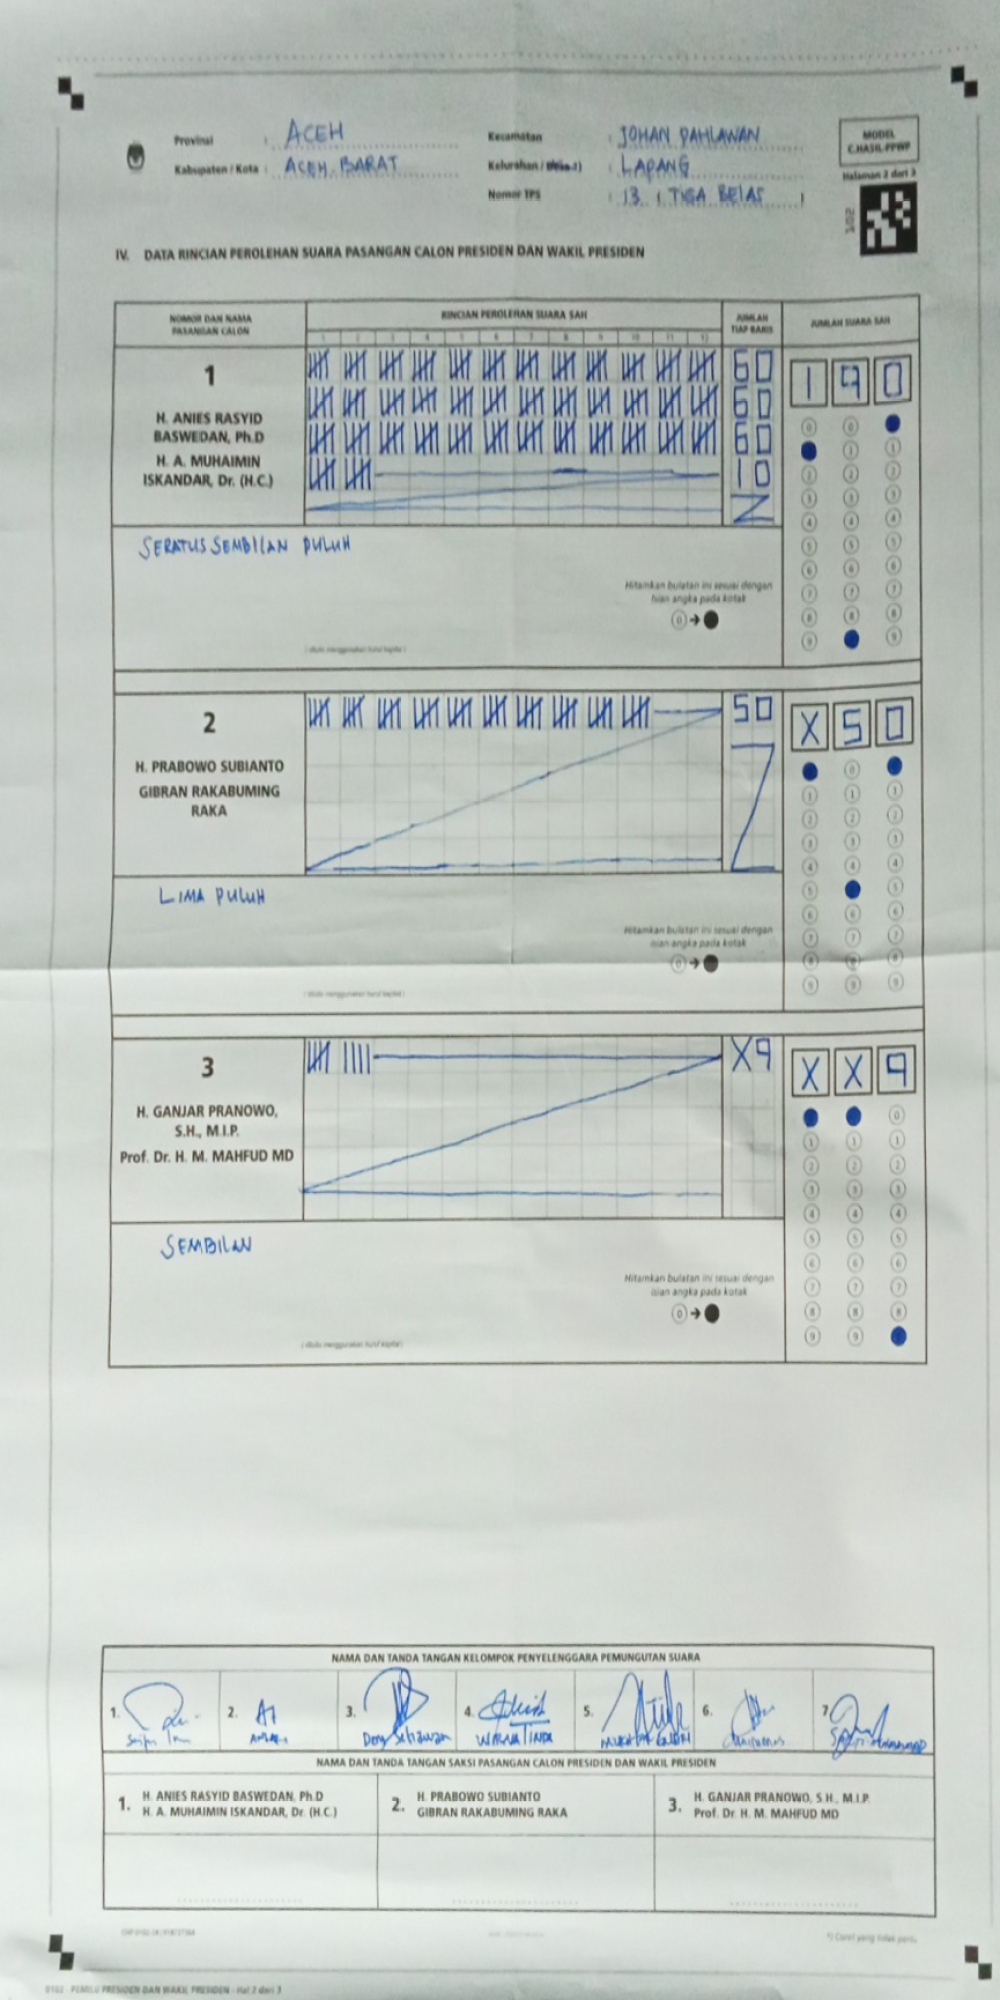 Provinsi : ACEH
Kabupaten / Kota : ACEH BARAT
Kecamatan : JOHAN PAHLAWAN
Kelurahan / Desa *) : LAPANG
Nomor TPS : 13 ( TIGA BELAS )
MODEL
C.HASIL-PPWP
Halaman 2 dari 3
IV. DATA RINCIAN PEROLEHAN SUARA PASANGAN CALON PRESIDEN DAN WAKIL PRESIDEN
NOMOR DAN NAMA
PASANGAN CALON
RINCIAN PEROLEHAN SUARA SAH
1 2 3 4 5 6 7 8 9 10 11 12
JUMLAH
TIAP BARIS
JUMLAH SUARA SAH
1
H. ANIES RASYID
BASWEDAN, Ph.D
H. A. MUHAIMIN
ISKANDAR, Dr. (H.C.)
60
60
60
10
1 9 0
SERATUS SEMBILAN PULUH
Hitamkan bulatan ini sesuai dengan
isian angka pada kotak
(ditulis menggunakan huruf kapital)
2
H. PRABOWO SUBIANTO
GIBRAN RAKABUMING
RAKA
50
X 5 0
LIMA PULUH
Hitamkan bulatan ini sesuai dengan
isian angka pada kotak
(ditulis menggunakan huruf kapital)
3
H. GANJAR PRANOWO,
S.H., M.I.P.
Prof. Dr. H. M. MAHFUD MD
X9
X X 9
SEMBILAN
Hitamkan bulatan ini sesuai dengan
isian angka pada kotak
(ditulis menggunakan huruf kapital)
NAMA DAN TANDA TANGAN KELOMPOK PENYELENGGARA PEMUNGUTAN SUARA
1. 2. 3. 4. 5. 6. 7.
NAMA DAN TANDA TANGAN SAKSI PASANGAN CALON PRESIDEN DAN WAKIL PRESIDEN
1. H. ANIES RASYID BASWEDAN, Ph.D
H. A. MUHAIMIN ISKANDAR, Dr. (H.C.)
2. H. PRABOWO SUBIANTO
GIBRAN RAKABUMING RAKA
3. H. GANJAR PRANOWO, S.H., M.I.P.
Prof. Dr. H. M. MAHFUD MD
*) Coret yang tidak perlu
0102 - PEMILU PRESIDEN DAN WAKIL PRESIDEN - Hal 2 dari 3